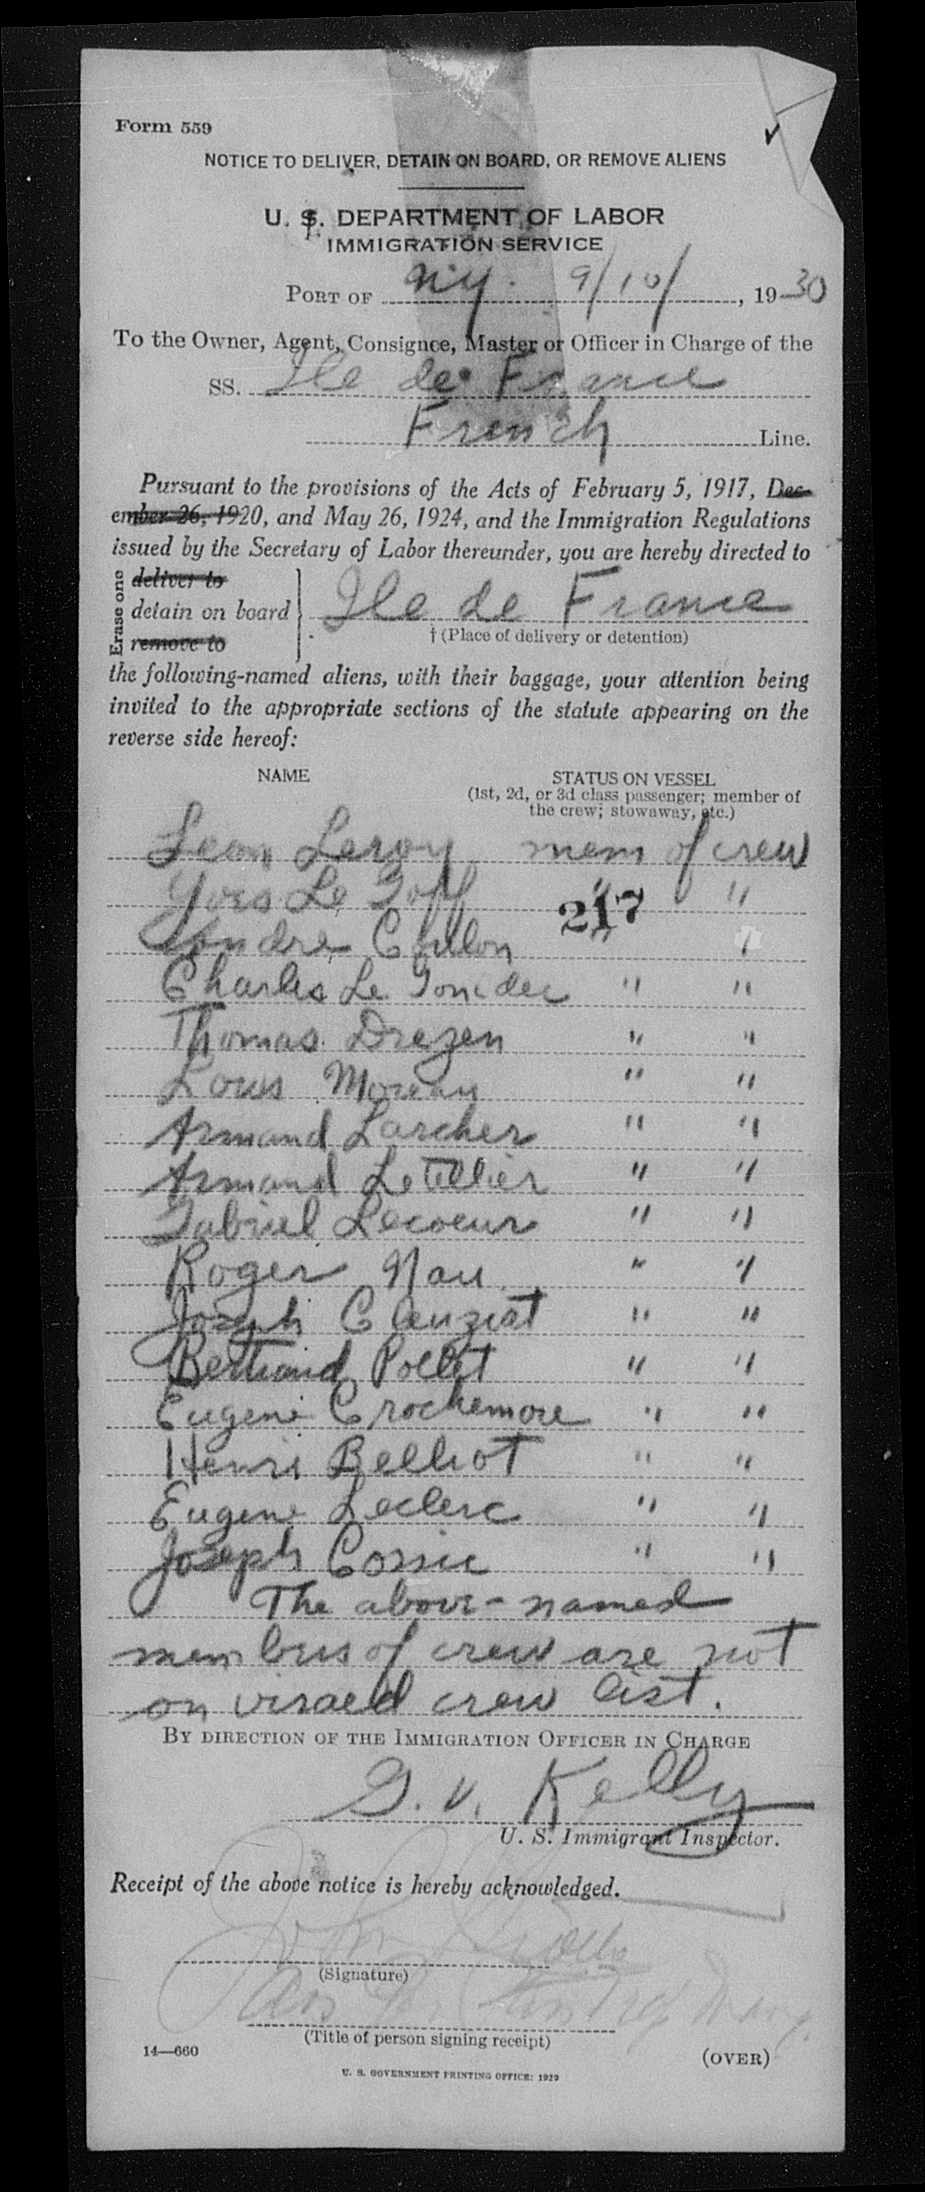 Form 559
NOTICE TO DELIVER, DETAIN ON BOARD, OR REMOVE ALIENS
U. S. DEPARTMENT OF LABOR
IMMIGRATION SERVICE
PORT OF N.Y. 9/10/, 1930
To the Owner, Agent, Consignee, Master or Officer in Charge of the
SS. Ile de France
French Line.
Pursuant to the provisions of the Acts of February 5, 1917, Dec-
ember 26, 1920, and May 26, 1924, and the Immigration Regulations
issued by the Secretary of Labor thereunder, you are hereby directed to
Erase one
deliver to
detain on board Ile de France
remove to
† (Place of delivery or detention)
the following-named aliens, with their baggage, your attention being
invited to the appropriate sections of the statute appearing on the
reverse side hereof:
NAME STATUS ON VESSEL
(1st, 2d, or 3d class passenger; member of
the crew; stowaway, etc.)
Leon Leroy mem of crew
Yves Le Goff " "
217
Andre Coulon " "
Charles Le Gonidec " "
Thomas Drezen " "
Louis Moreau " "
Armand Larcher " "
Armand Letellier " "
Gabriel Lecoeur " "
Roger Nau " "
Joseph Clauziat " "
Bertrand Pollet " "
Eugene Crochemore " "
Henri Belliot " "
Eugene Leclerc " "
Joseph Cossic " "
The above-named
members of crew are not
on visaed crew list.
BY DIRECTION OF THE IMMIGRATION OFFICER IN CHARGE
G. V. Kelly
U. S. Immigrant Inspector.
Receipt of the above notice is hereby acknowledged.
(Signature)
(Title of person signing receipt)
14—660 (OVER)
U. S. GOVERNMENT PRINTING OFFICE: 1929